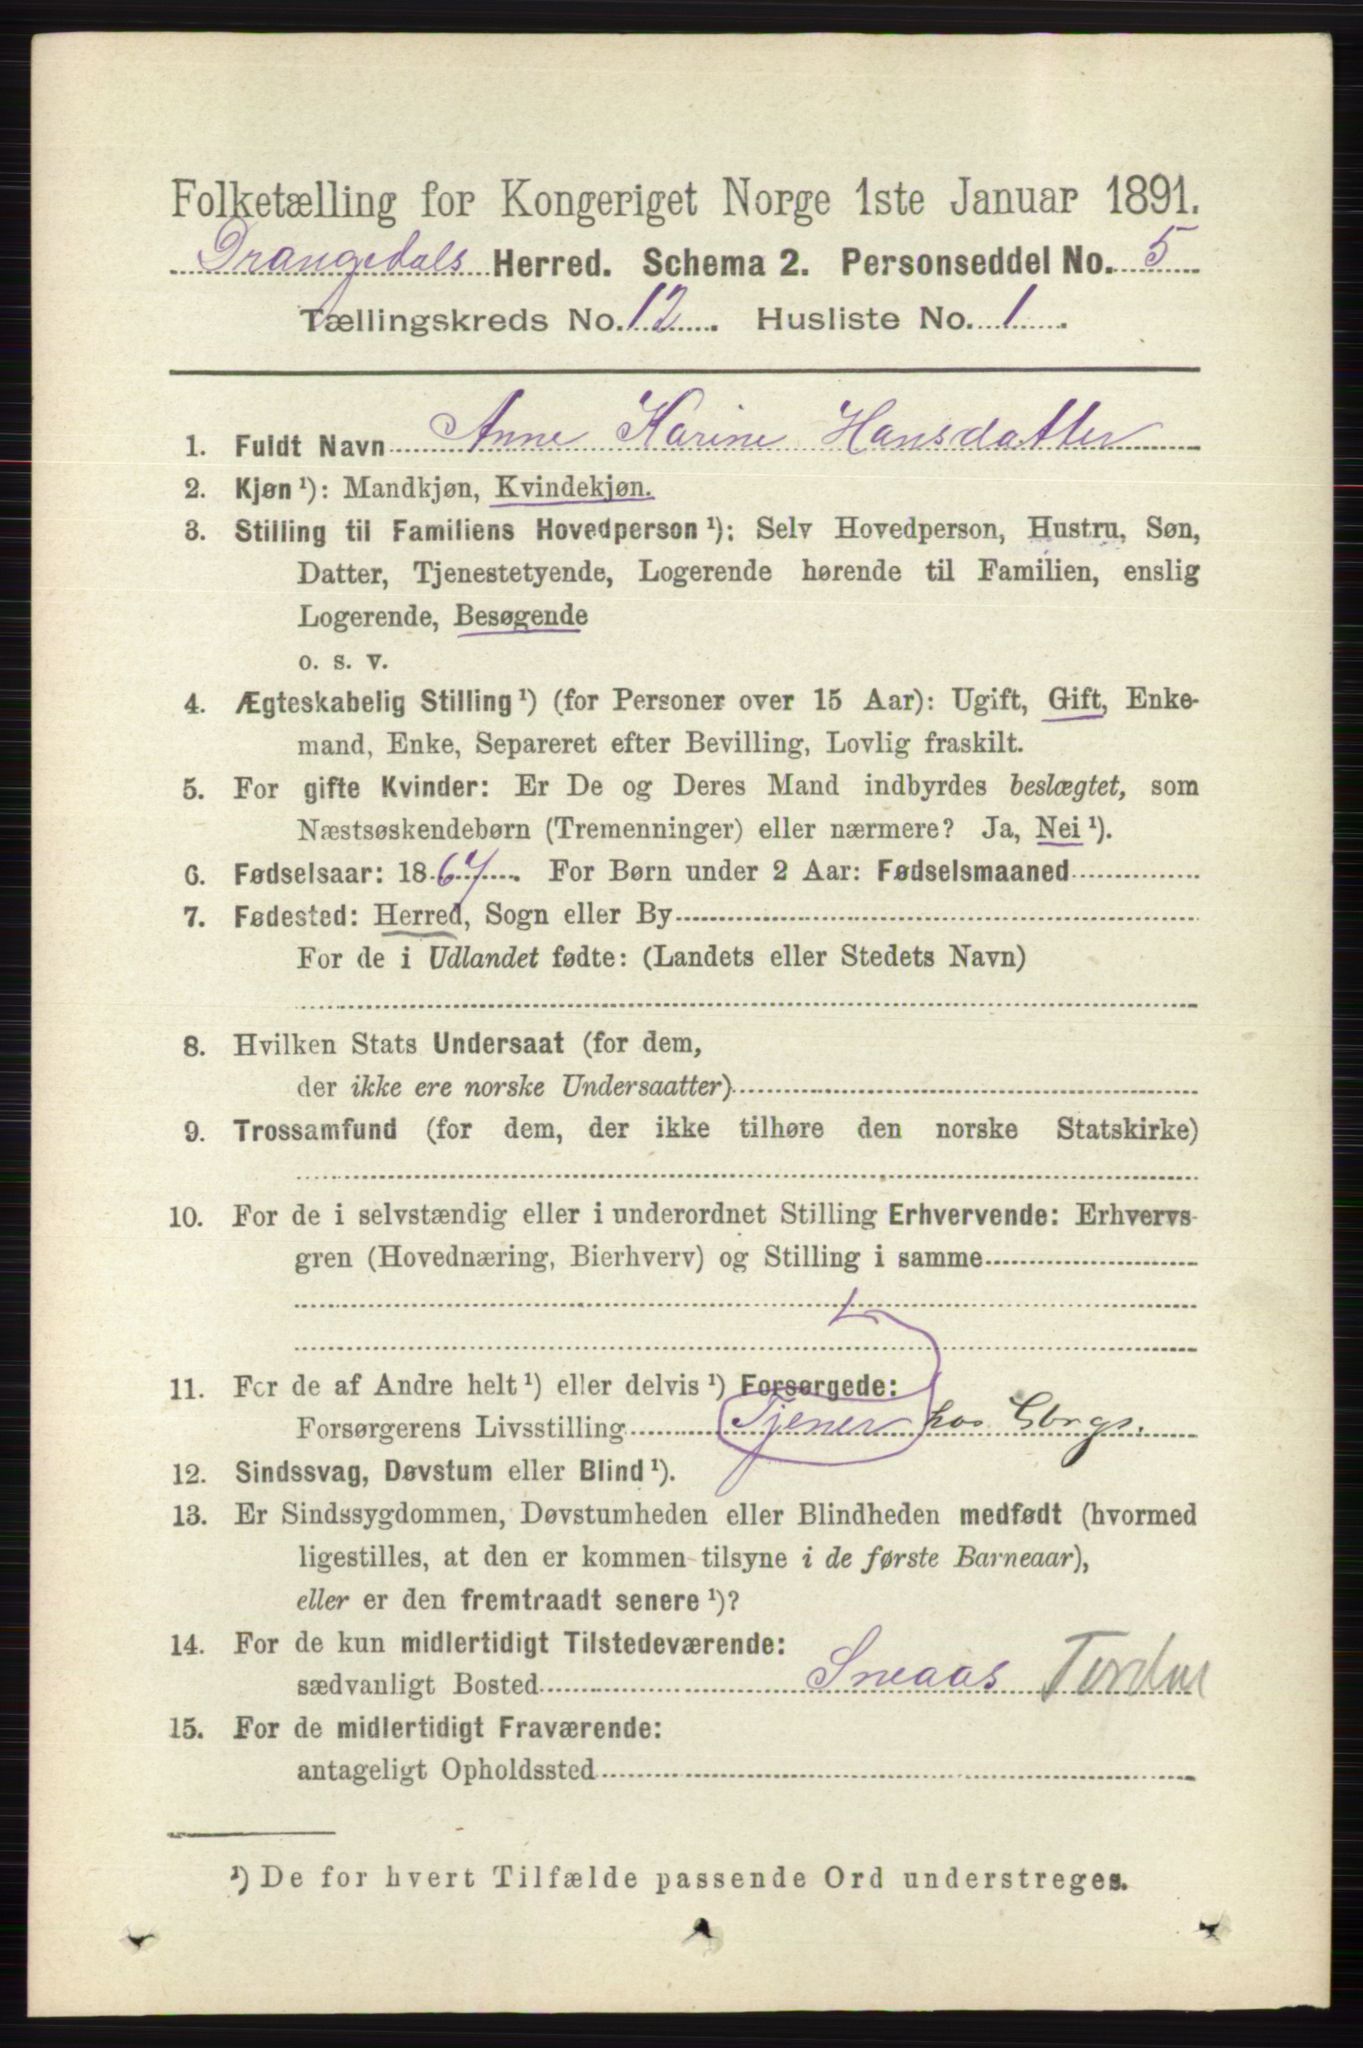 Folketælling for Kongeriget Norge 1ste Januar 1891.
Drangedals Herred. Schema 2. Personseddel No. 5
Tællingskreds No. 12. Husliste No. 1.
1. Fuldt Navn Anne Karine Hansdatter
2. Kjøn ¹): Mandkjøn, Kvindekjøn.
3. Stilling til Familiens Hovedperson ¹): Selv Hovedperson, Hustru, Søn,
Datter, Tjenestetyende, Logerende hørende til Familien, enslig
Logerende, Besøgende
o. s. v.
4. Ægteskabelig Stilling ¹) (for Personer over 15 Aar): Ugift, Gift, Enke-
mand, Enke, Separeret efter Bevilling, Lovlig fraskilt.
5. For gifte Kvinder: Er De og Deres Mand indbyrdes beslægtet, som
Næstsøskendebørn (Tremenninger) eller nærmere? Ja, Nei ¹).
6. Fødselsaar: 1867. For Børn under 2 Aar: Fødselsmaaned
7. Fødested: Herred, Sogn eller By
For de i Udlandet fødte: (Landets eller Stedets Navn)
8. Hvilken Stats Undersaat (for dem,
der ikke ere norske Undersaatter)
9. Trossamfund (for dem, der ikke tilhøre den norske Statskirke)
10. For de i selvstændig eller i underordnet Stilling Erhvervende: Erhvervs-
gren (Hovednæring, Bierhverv) og Stilling i samme
11. For de af Andre helt ¹) eller delvis ¹) Forsørgede:
Forsørgerens Livsstilling Tjener hos Gbrgs.
12. Sindssvag, Døvstum eller Blind ¹).
13. Er Sindssygdommen, Døvstumheden eller Blindheden medfødt (hvormed
ligestilles, at den er kommen tilsyne i de første Barneaar),
eller er den fremtraadt senere ¹)?
14. For de kun midlertidigt Tilstedeværende:
sædvanligt Bosted Sneaas
15. For de midlertidigt Fraværende:
antageligt Opholdssted
¹) De for hvert Tilfælde passende Ord understreges.